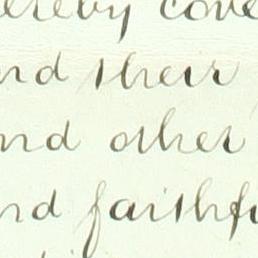 ereby cove
nd their
nd other
nd faithfu